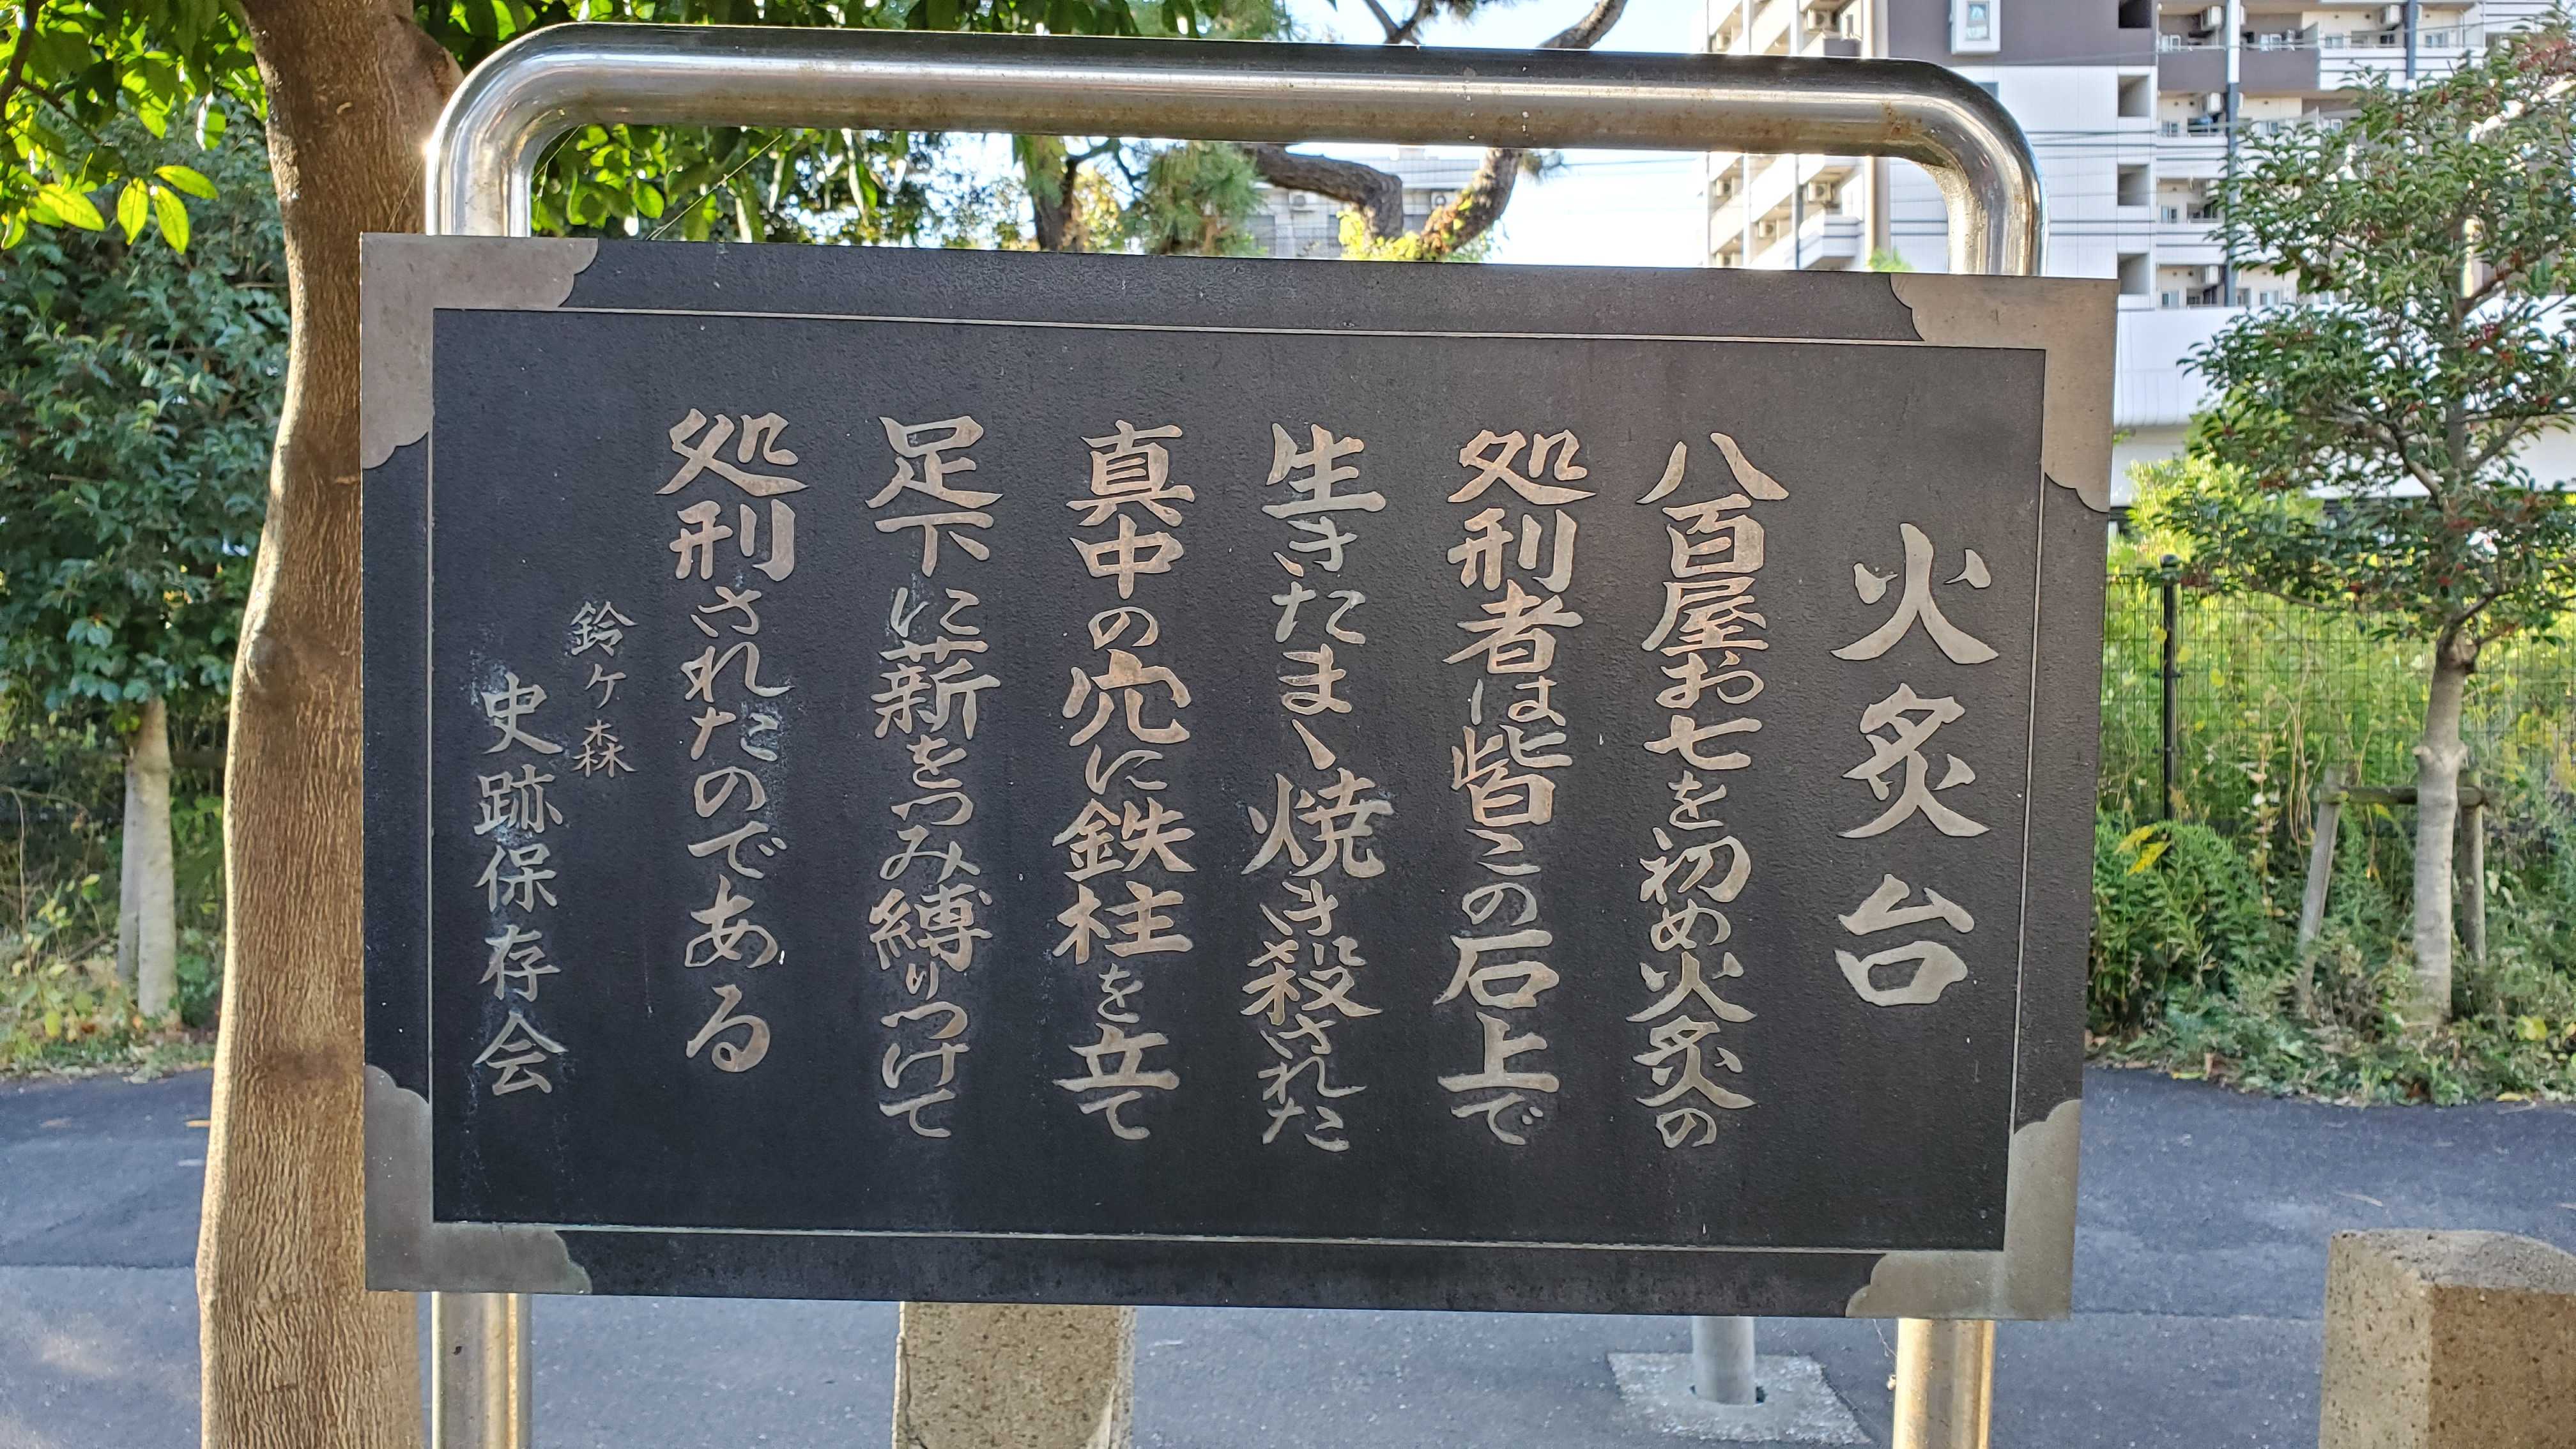 火炙台
八百屋お七を初め火炙の
処刑者は皆この石上で
生きたまゝ焼き殺された
真中の穴に鉄柱を立て
足下に薪をつみ縛りつけて
処刑されたのである
鈴ケ森
史跡保存会